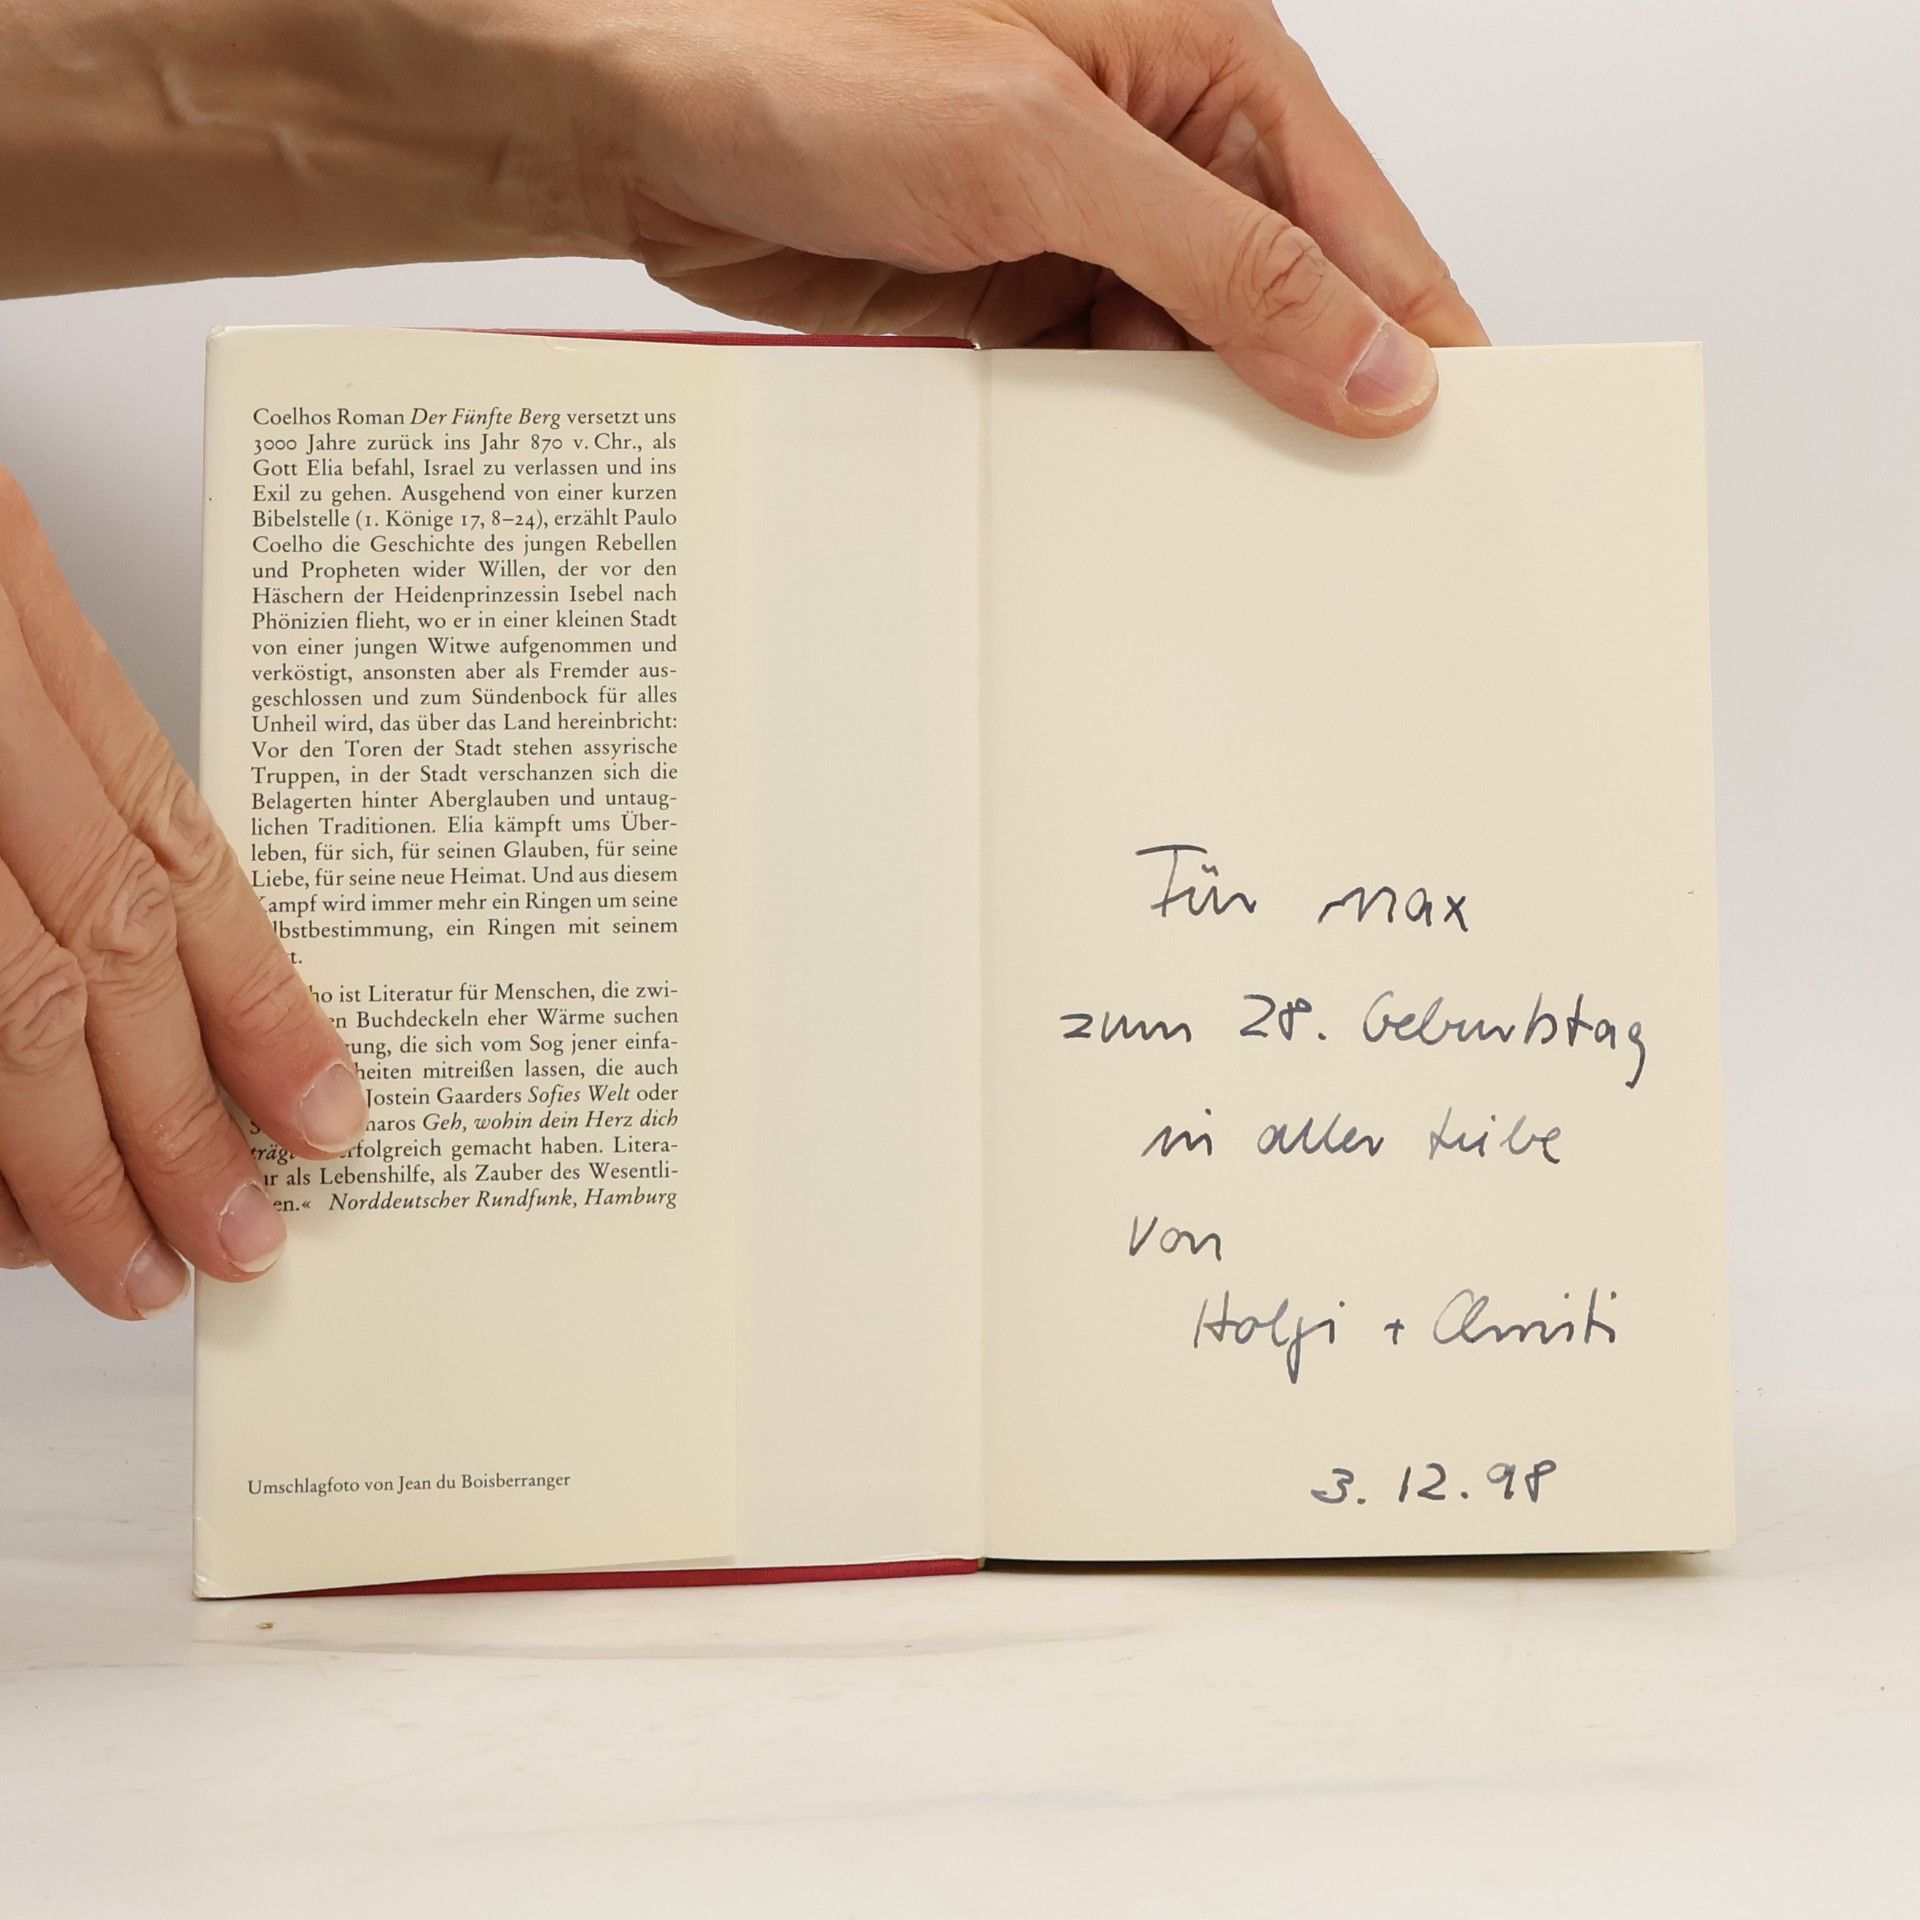 Coelhos Roman Der Fünfte Berg versetzt uns
3000 Jahre zurück ins Jahr 870 v. Chr., als
Gott Elia befahl, Israel zu verlassen und ins
Exil zu gehen. Ausgehend von einer kurzen
Bibelstelle (1. Könige 17, 8–24), erzählt Paulo
Coelho die Geschichte des jungen Rebellen
und Propheten wider Willen, der vor den
Häschern der Heidenprinzessin Isebel nach
Phönizien flieht, wo er in einer kleinen Stadt
von einer jungen Witwe aufgenommen und
verköstigt, ansonsten aber als Fremder aus-
geschlossen und zum Sündenbock für alles
Unheil wird, das über das Land hereinbricht:
Vor den Toren der Stadt stehen assyrische
Truppen, in der Stadt verschanzen sich die
Belagerten hinter Aberglauben und untaug-
lichen Traditionen. Elia kämpft ums Über-
leben, für sich, für seinen Glauben, für seine
Liebe, für seine neue Heimat. Und aus diesem
ampf wird immer mehr ein Ringen um seine
lbstbestimmung, ein Ringen mit seinem
t.
ho ist Literatur für Menschen, die zwi-
en Buchdeckeln eher Wärme suchen
ung, die sich vom Sog jener einfa-
heiten mitreißen lassen, die auch
Jostein Gaarders Sofies Welt oder
maros Geh, wohin dein Herz dich
träg rfolgreich gemacht haben. Litera-
ur als Lebenshilfe, als Zauber des Wesentli-
en.« Norddeutscher Rundfunk, Hamburg
Umschlagfoto von Jean du Boisberranger
Für Max
zum 28. Geburtstag
in aller Liebe
von
Holgi + Christi
3.12.98